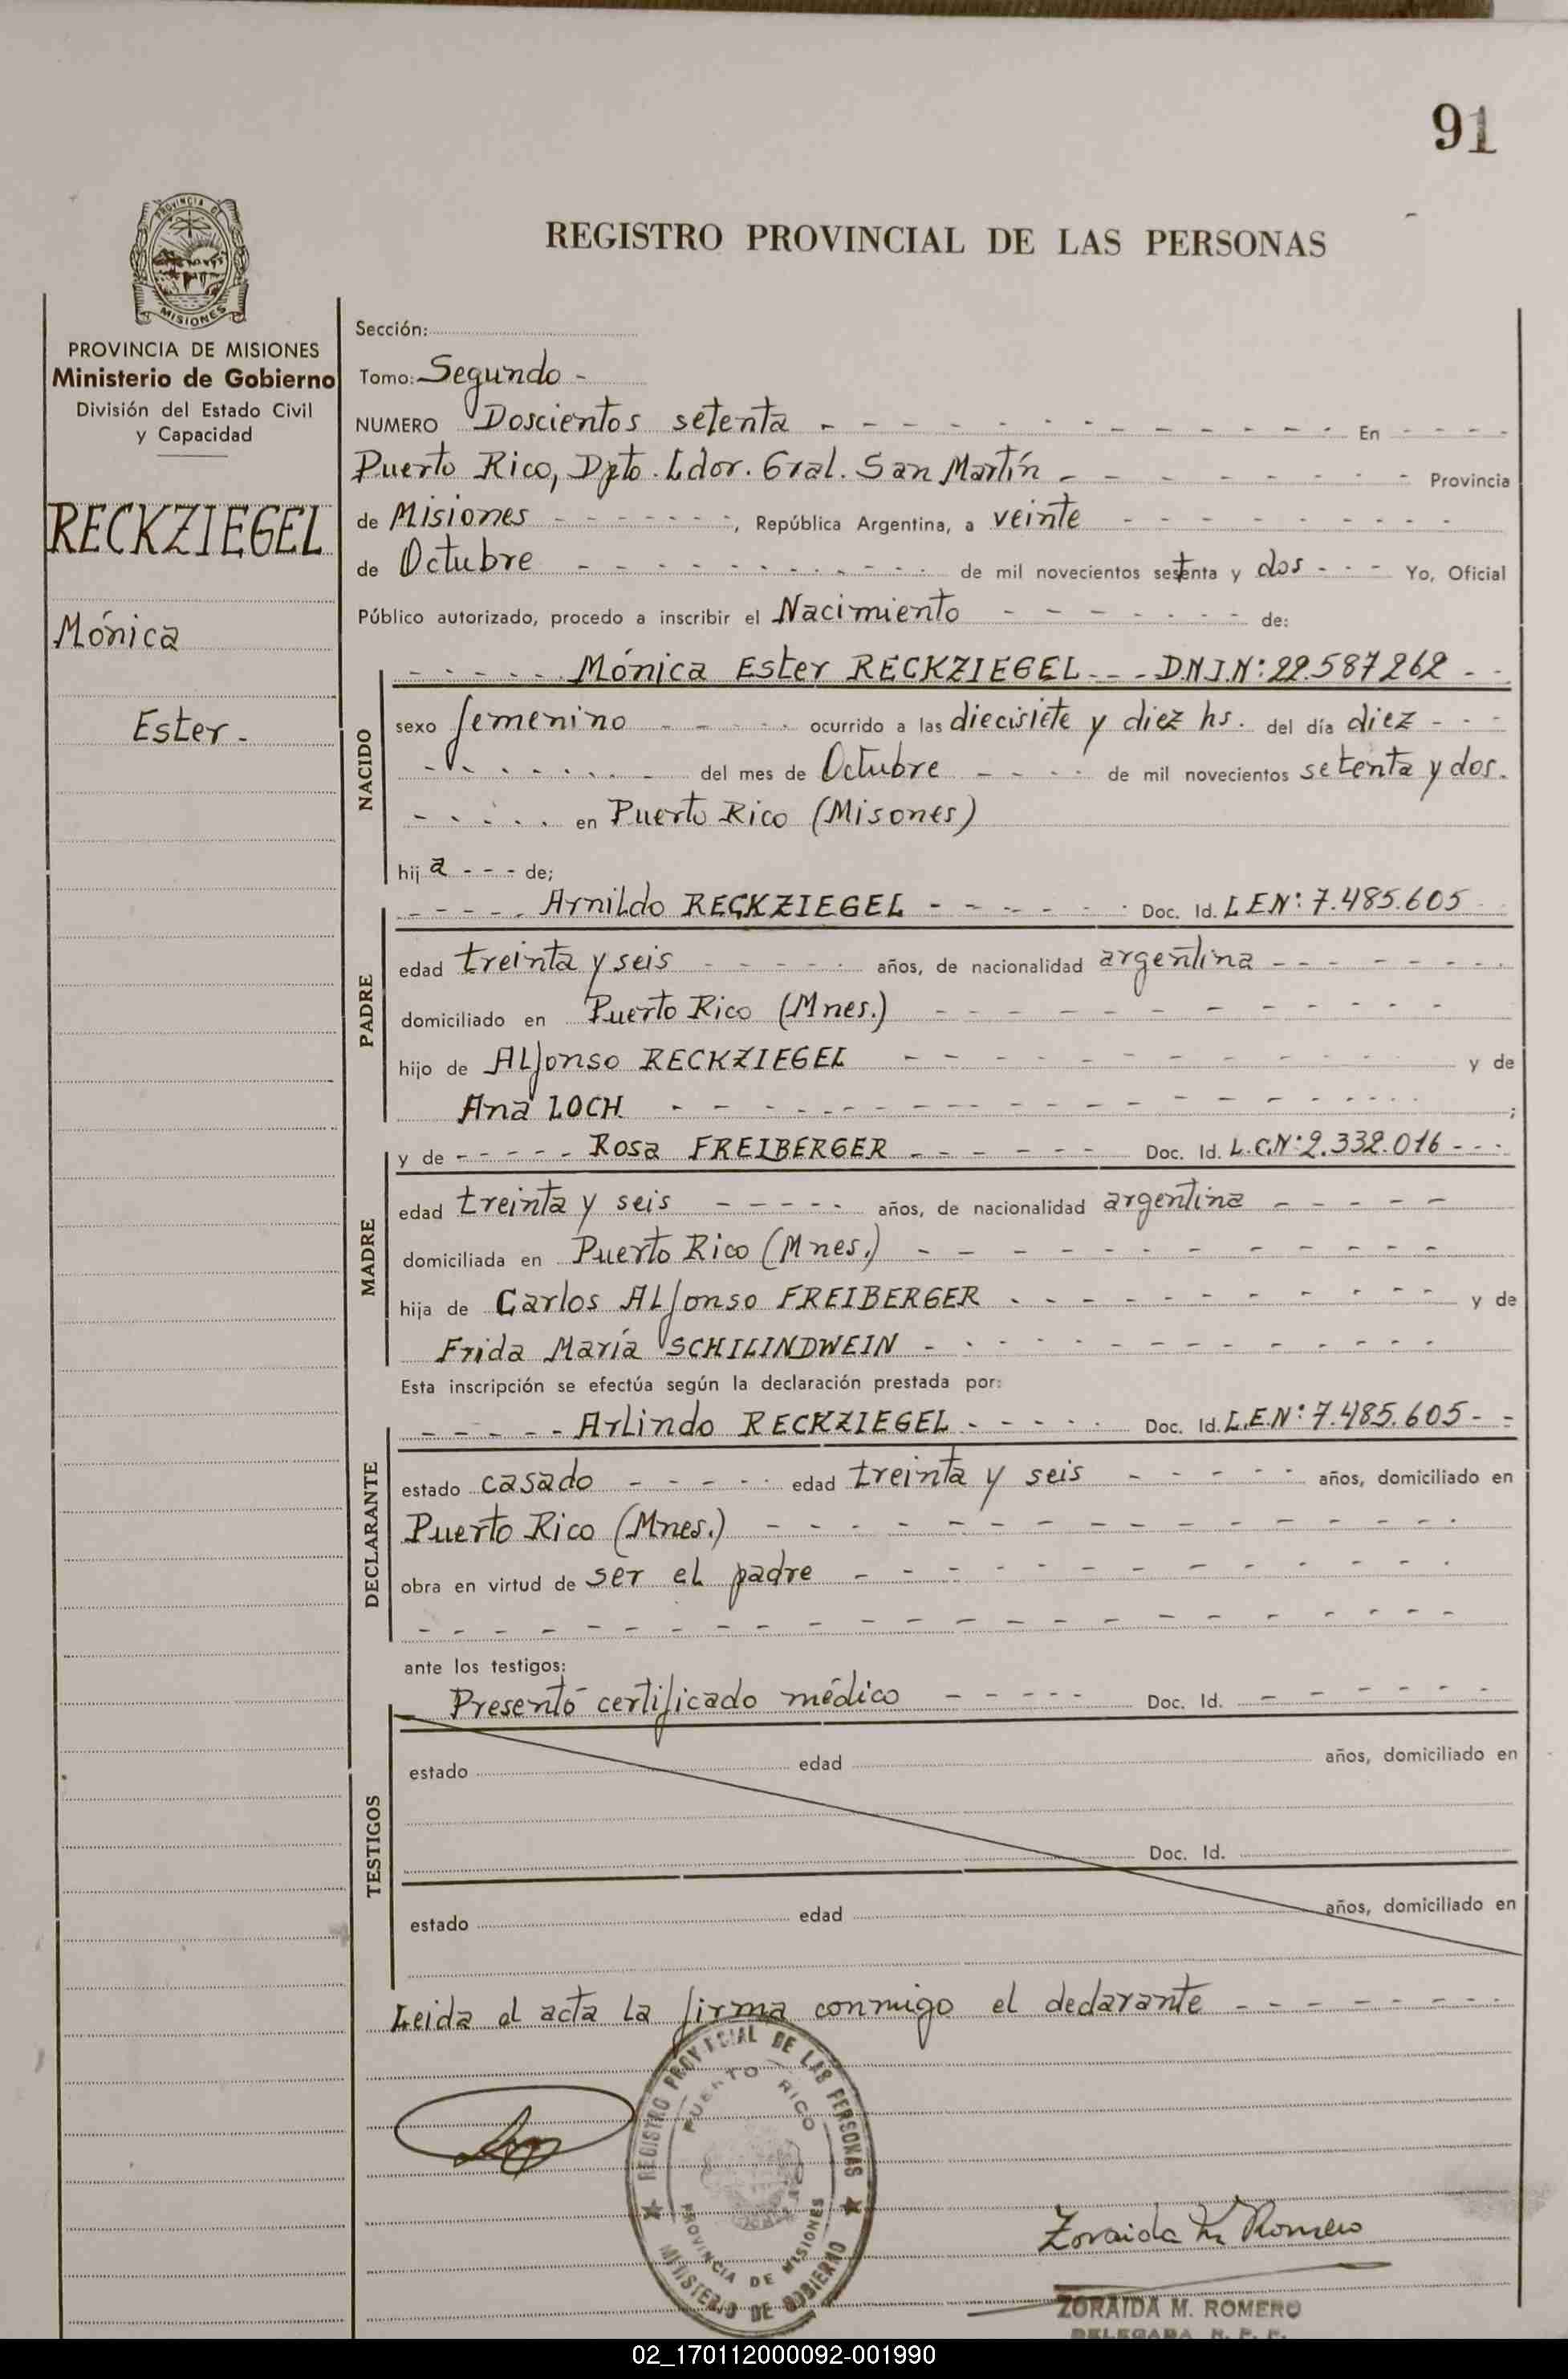 91
PROVINCIA DE
MISIONES
REGISTRO PROVINCIAL DE LAS PERSONAS
PROVINCIA DE MISIONES
Ministerio de Gobierno
División del Estado Civil
y Capacidad
RECKZIEGEL
Mónica
Ester -
Sección:
Tomo: Segundo -
NUMERO Doscientos setenta - - - En - - -
Puerto Rico, Dpto. Ldor. Gral. San Martín - - - Provincia
de Misiones - - - , República Argentina, a veinte - - -
de Octubre - - - de mil novecientos setenta y dos - - - Yo, Oficial
Público autorizado, procedo a inscribir el Nacimiento - - - de:
NACIDO
- - - Mónica Ester RECKZIEGEL - - - D.N.I.N: 22.587262 - -
sexo femenino - - - ocurrido a las diecisiete y diez hs. del día diez - - -
- - - del mes de Octubre - - - de mil novecientos setenta y dos.
- - - en Puerto Rico (Misones)
hij a - - - de;
PADRE
- - - Arnildo RECKZIEGEL - - - Doc. Id. L.E.N: 7.485.605
edad treinta y seis - - - años, de nacionalidad argentina - - -
domiciliado en Puerto Rico (Mnes.) - - -
hijo de Alfonso RECKZIEGEL - - - y de
Ana LOCH - - - ;
MADRE
y de - - - Rosa FREIBERGER - - - Doc. Id. L.C.N: 2.332.016 - - -
edad treinta y seis - - - años, de nacionalidad argentina - - -
domiciliada en Puerto Rico (Mnes.) - - -
hija de Carlos Alfonso FREIBERGER - - - y de
Frida María SCHILINDWEIN - - -
Esta inscripción se efectúa según la declaración prestada por:
DECLARANTE
- - - Arlindo RECKZIEGEL - - - Doc. Id. L.E.N: 7.485.605 - -
estado casado - - - edad treinta y seis - - - años, domiciliado en
Puerto Rico (Mnes.) - - -
obra en virtud de ser el padre - - -
ante los testigos:
TESTIGOS
Presentó certificado médico - - - Doc. Id. - - -
estado edad años, domiciliado en
Doc. Id.
estado edad años, domiciliado en
Leida el acta la firma conmigo el declarante - - -
REGISTRO PROVINCIAL DE LAS PERSONAS
PUERTO RICO
PROVINCIA DE MISIONES
MINISTERIO DE GOBIERNO
Zoraida M Romero
ZORAIDA M. ROMERO
DELEGADA R. P. P.
02_170112000092-001990